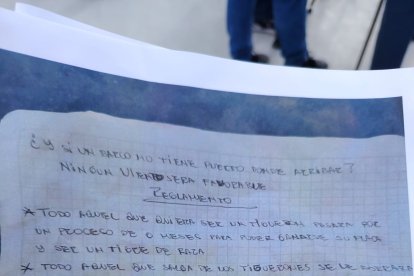 ¿Y SI UN BARCO NO TIENE PUERTO DONDE ARRIBAR?
NINGUN VIENTO SERA FAVORABLE
REGLAMENTO
* TODO AQUEL QUE QUIERA SER UN PASARA POR
UN PROCESO DE 6 MESES PARA PODER GANARSE SU PLACA
Y SER UN TIGRE DE RAZA
* TODO AQUEL QUE SALGA DE LOS TIGUERONES SE LE